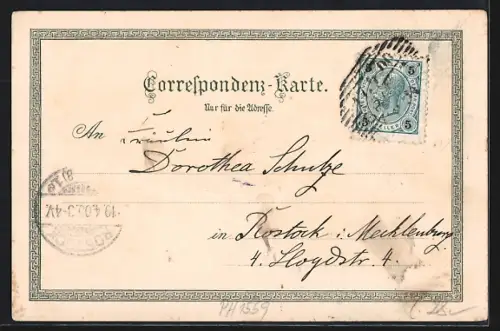 Correspondenz-Karte.
Nur für die Adresse.
5 5
5 5
An Fräulein
Dorothea Schulze
in Rostock i. Mecklenburg
4. Lloydstr. 4.
19.4.00.3-4N.
ROSTOCK
PH1559